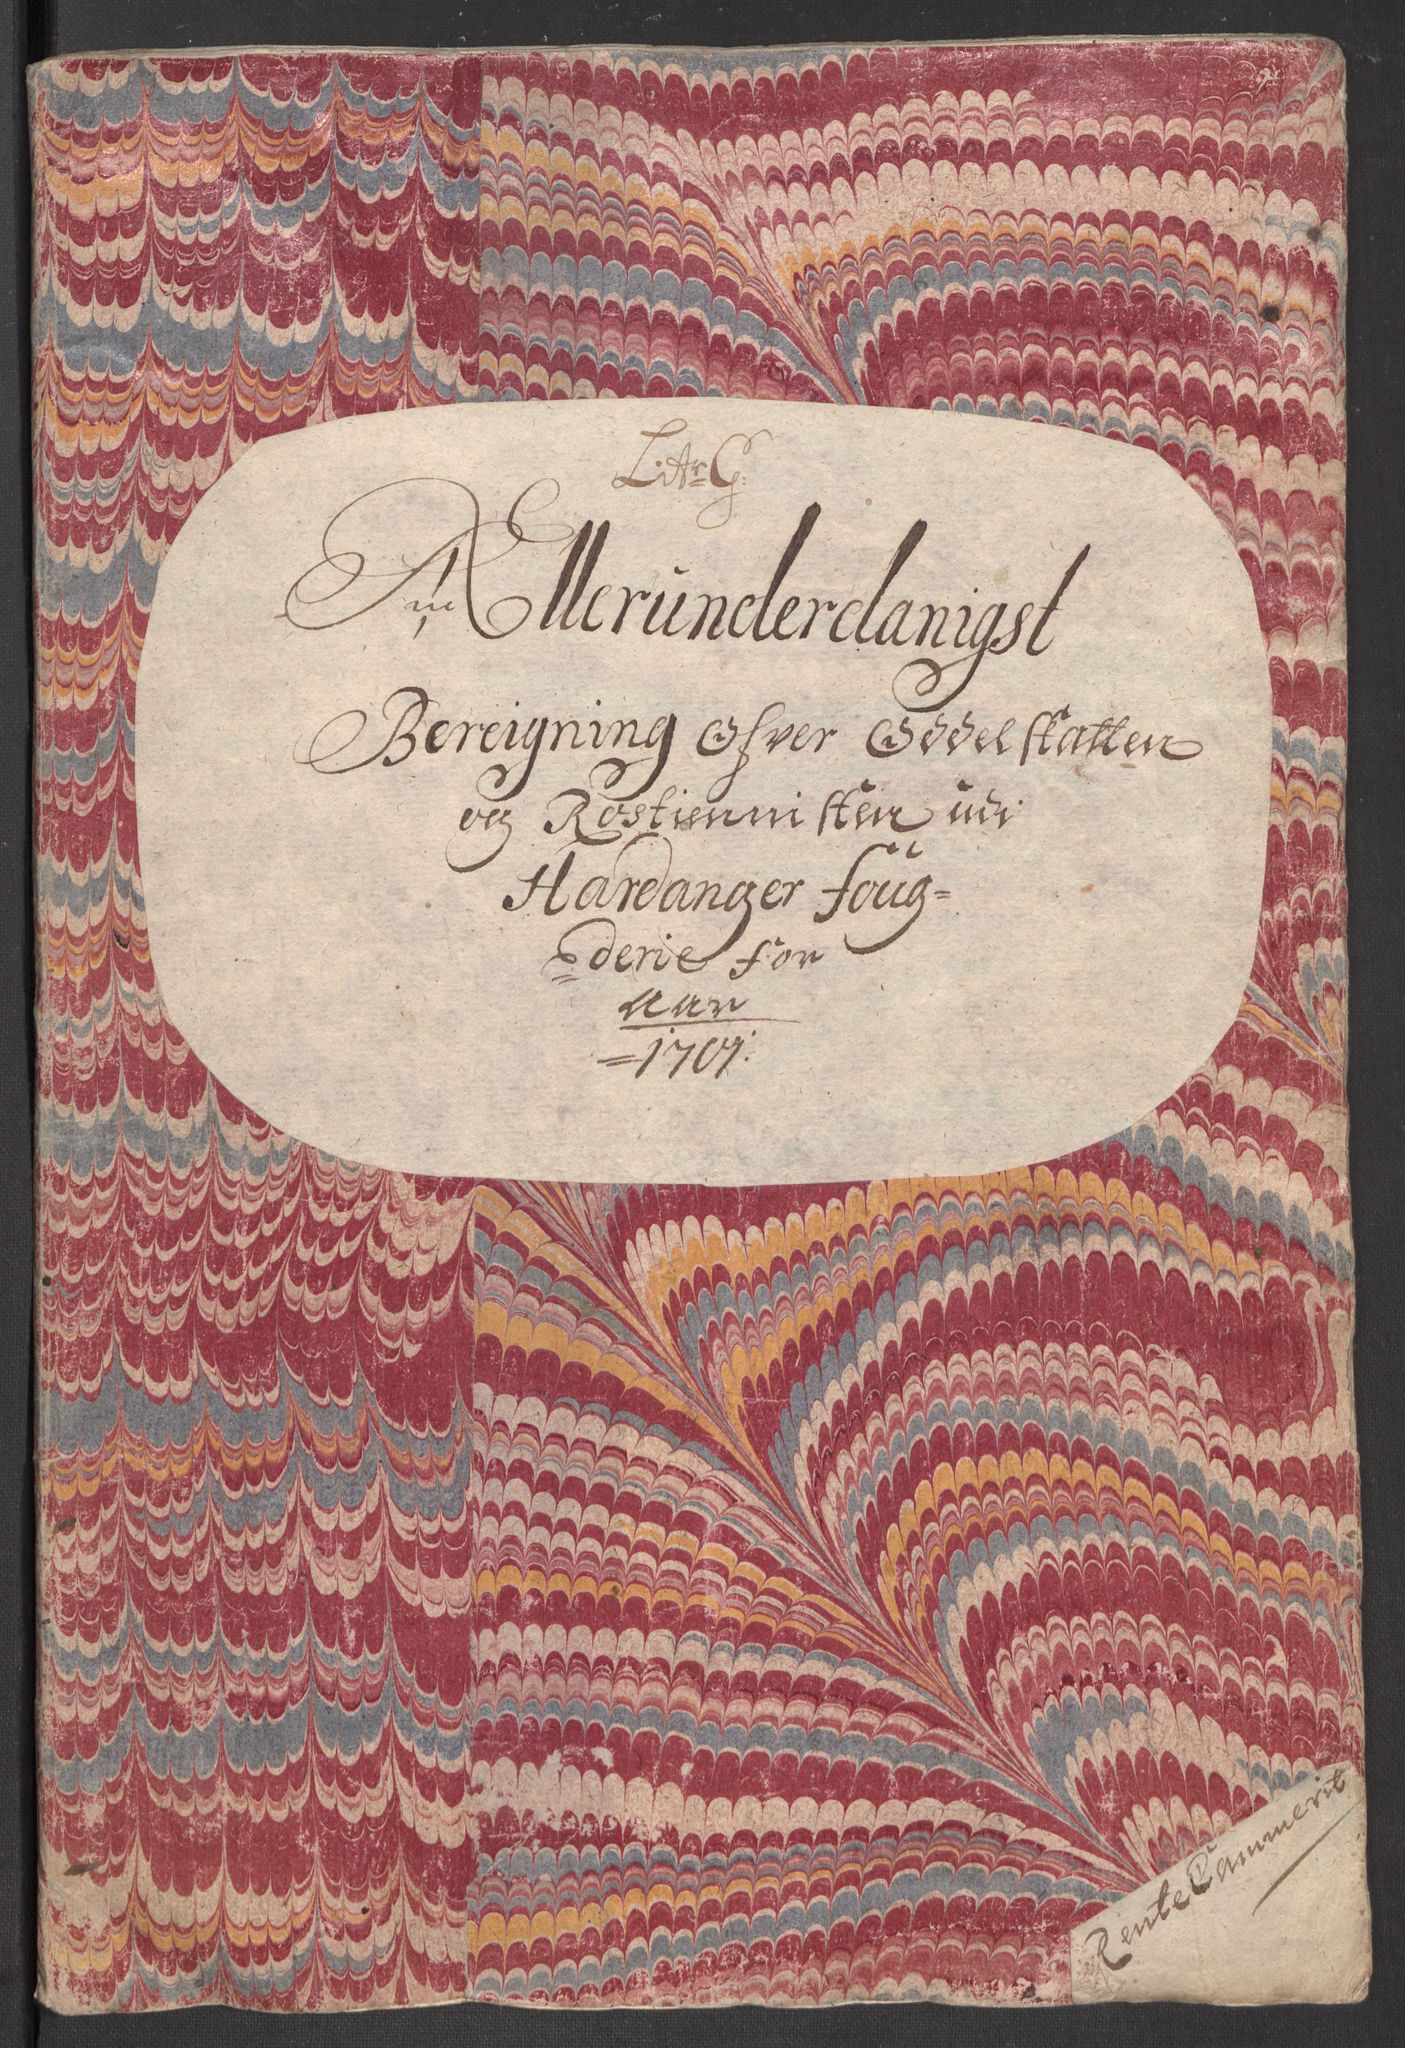 Litr G:
Allerúnderdanigst
Bereigning Ofver Oddelskatten
og Rostiennisten udi
Hardanger foúg=
=derie for
Aar
=1701:
RenteCammerit